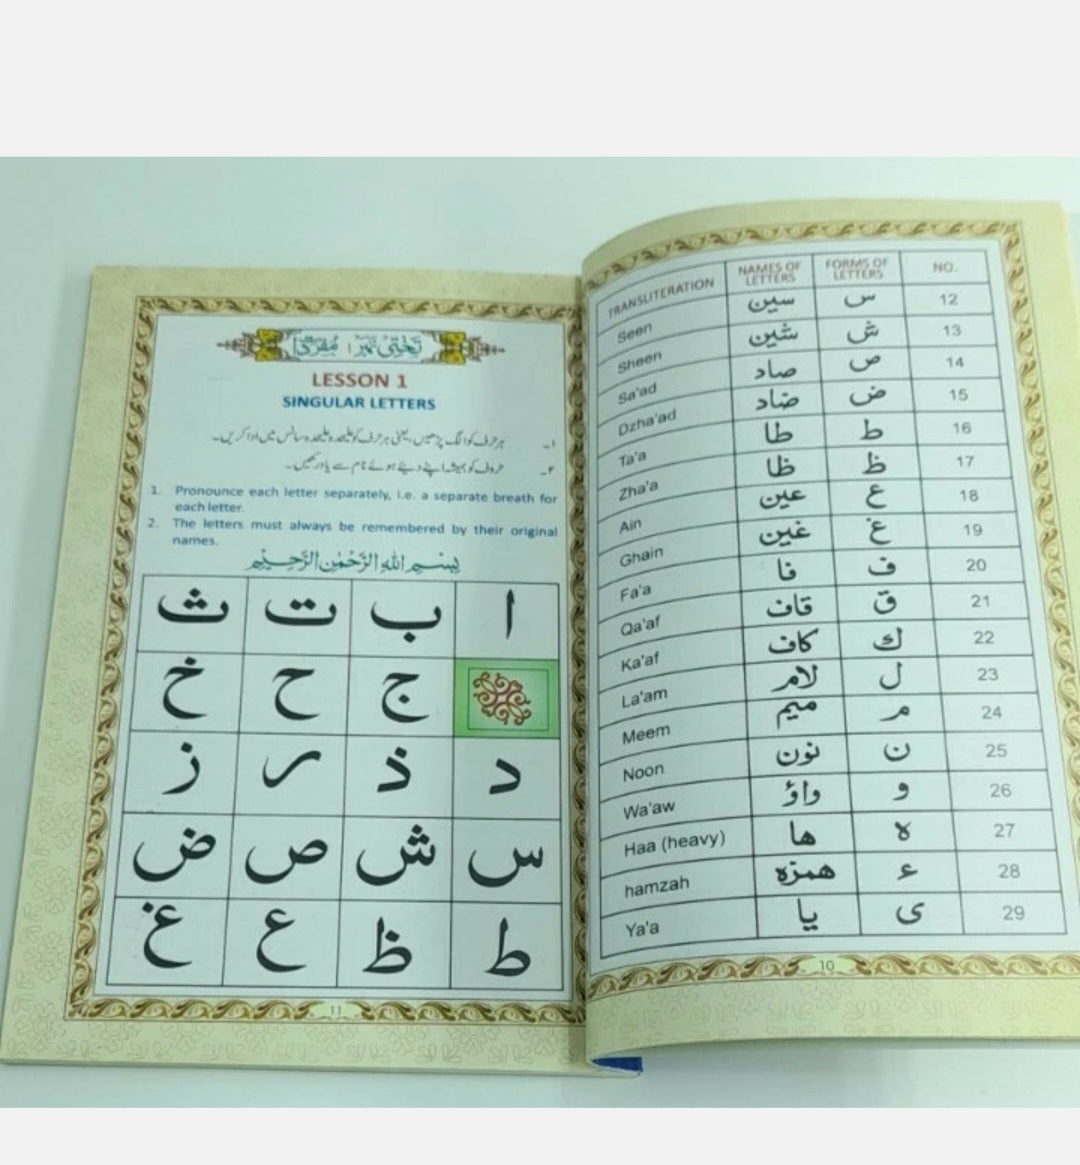 TRANSLITERATION NAMES OF LETTERS FORMS OF LETTERS NO.
Seen سين س 12
Sheen شين ش 13
Sa'ad صاد ص 14
Dzha'ad ضاد ض 15
Ta'a طا ط 16
Zha'a ظا ظ 17
Ain عين ع 18
Ghain غين غ 19
Fa'a فا ف 20
Qa'af قاف ق 21
Ka'af كاف ك 22
La'am لام ل 23
Meem ميم م 24
Noon نون ن 25
Wa'aw واؤ و 26
Haa (heavy) ها ه 27
hamzah همزه ء 28
Ya'a يا ى 29
10
تختی نمبر ۱ مفردات
LESSON 1
SINGULAR LETTERS
۱۔ ہر حرف کو الگ پڑھیں، یعنی ہر حرف کو علیحدہ علیحدہ سانس میں ادا کریں۔
۲۔ حروف کو ہمیشہ اپنے دیئے ہوئے نام سے یاد رکھیں۔
1. Pronounce each letter separately, i.e. a separate breath for
each letter.
2. The letters must always be remembered by their original
names.
بِسْمِ اللهِ الرَّحْمٰنِ الرَّحِيْمِ
ا ب ت ث
ج ح خ
د ذ ر ز
س ش ص ض
ط ظ ع غ
11